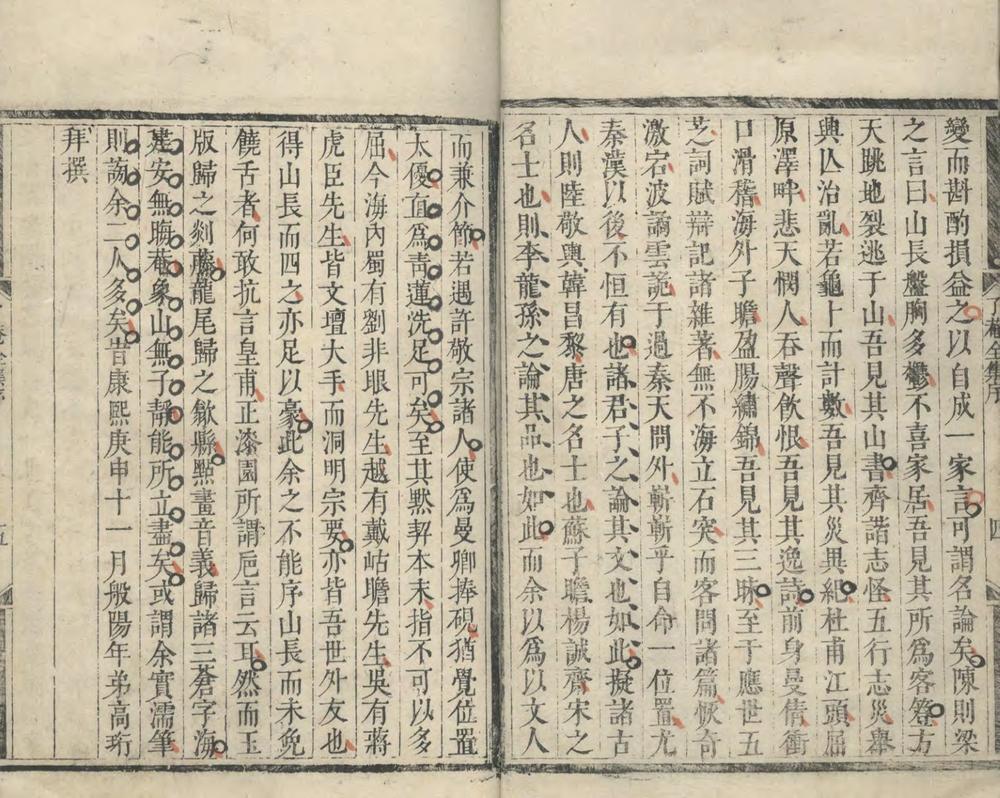 變而斟酌損益之以自成一家言可謂名論矣陳則梁
之言曰山長盤胸多鬱不喜家居吾見其所爲客簦方
天跳地裂逃于山吾見其山書齊諧志怪五行志災舉
興亾治亂若龜卜而計數吾見其災異紀杜甫江頭屈
原澤畔悲天憫人吞聲飮恨吾見其逸詩前身曼倩衝
口滑稽海外子瞻盈腸繡錦吾見其三昧至于應世五
芝詞賦辯記諸雜著無不海立石突而客問諸篇恢奇
激宕波譎雲詭于過秦天問外嶄嶄乎自命一位置尤
秦漢以後不恒有也諸君子之論其文也如此擬諸古
人則陸敬輿韓昌黎唐之名士也蘇子瞻楊誠齋宋之
名士也則李龍孫之論其品也如此而余以爲以文人
而兼介節若遇許敬宗諸人使爲曼卿捧硯猶覺位置
太優直爲靑蓮洗足可矣至其默契本末指不可以多
屈今海內蜀有劉非眼先生越有戴岵瞻先生吳有蔣
虎臣先生皆文壇大手而洞明宗要亦皆吾世外友也
得山長而四之亦足以豪此余之不能序山長而未免
饒舌者何敢抗言皇甫正漆園所謂巵言云耳然而玉
版歸之剡藤龍尾歸之歙縣㸃畫音義歸諸三蒼字海
建安無晦菴象山無子靜能所立盡矣或謂余實濡筆
則謝余二人多矣昔康熙庚申十一月般陽年弟高珩
拜撰
全集序
四
五